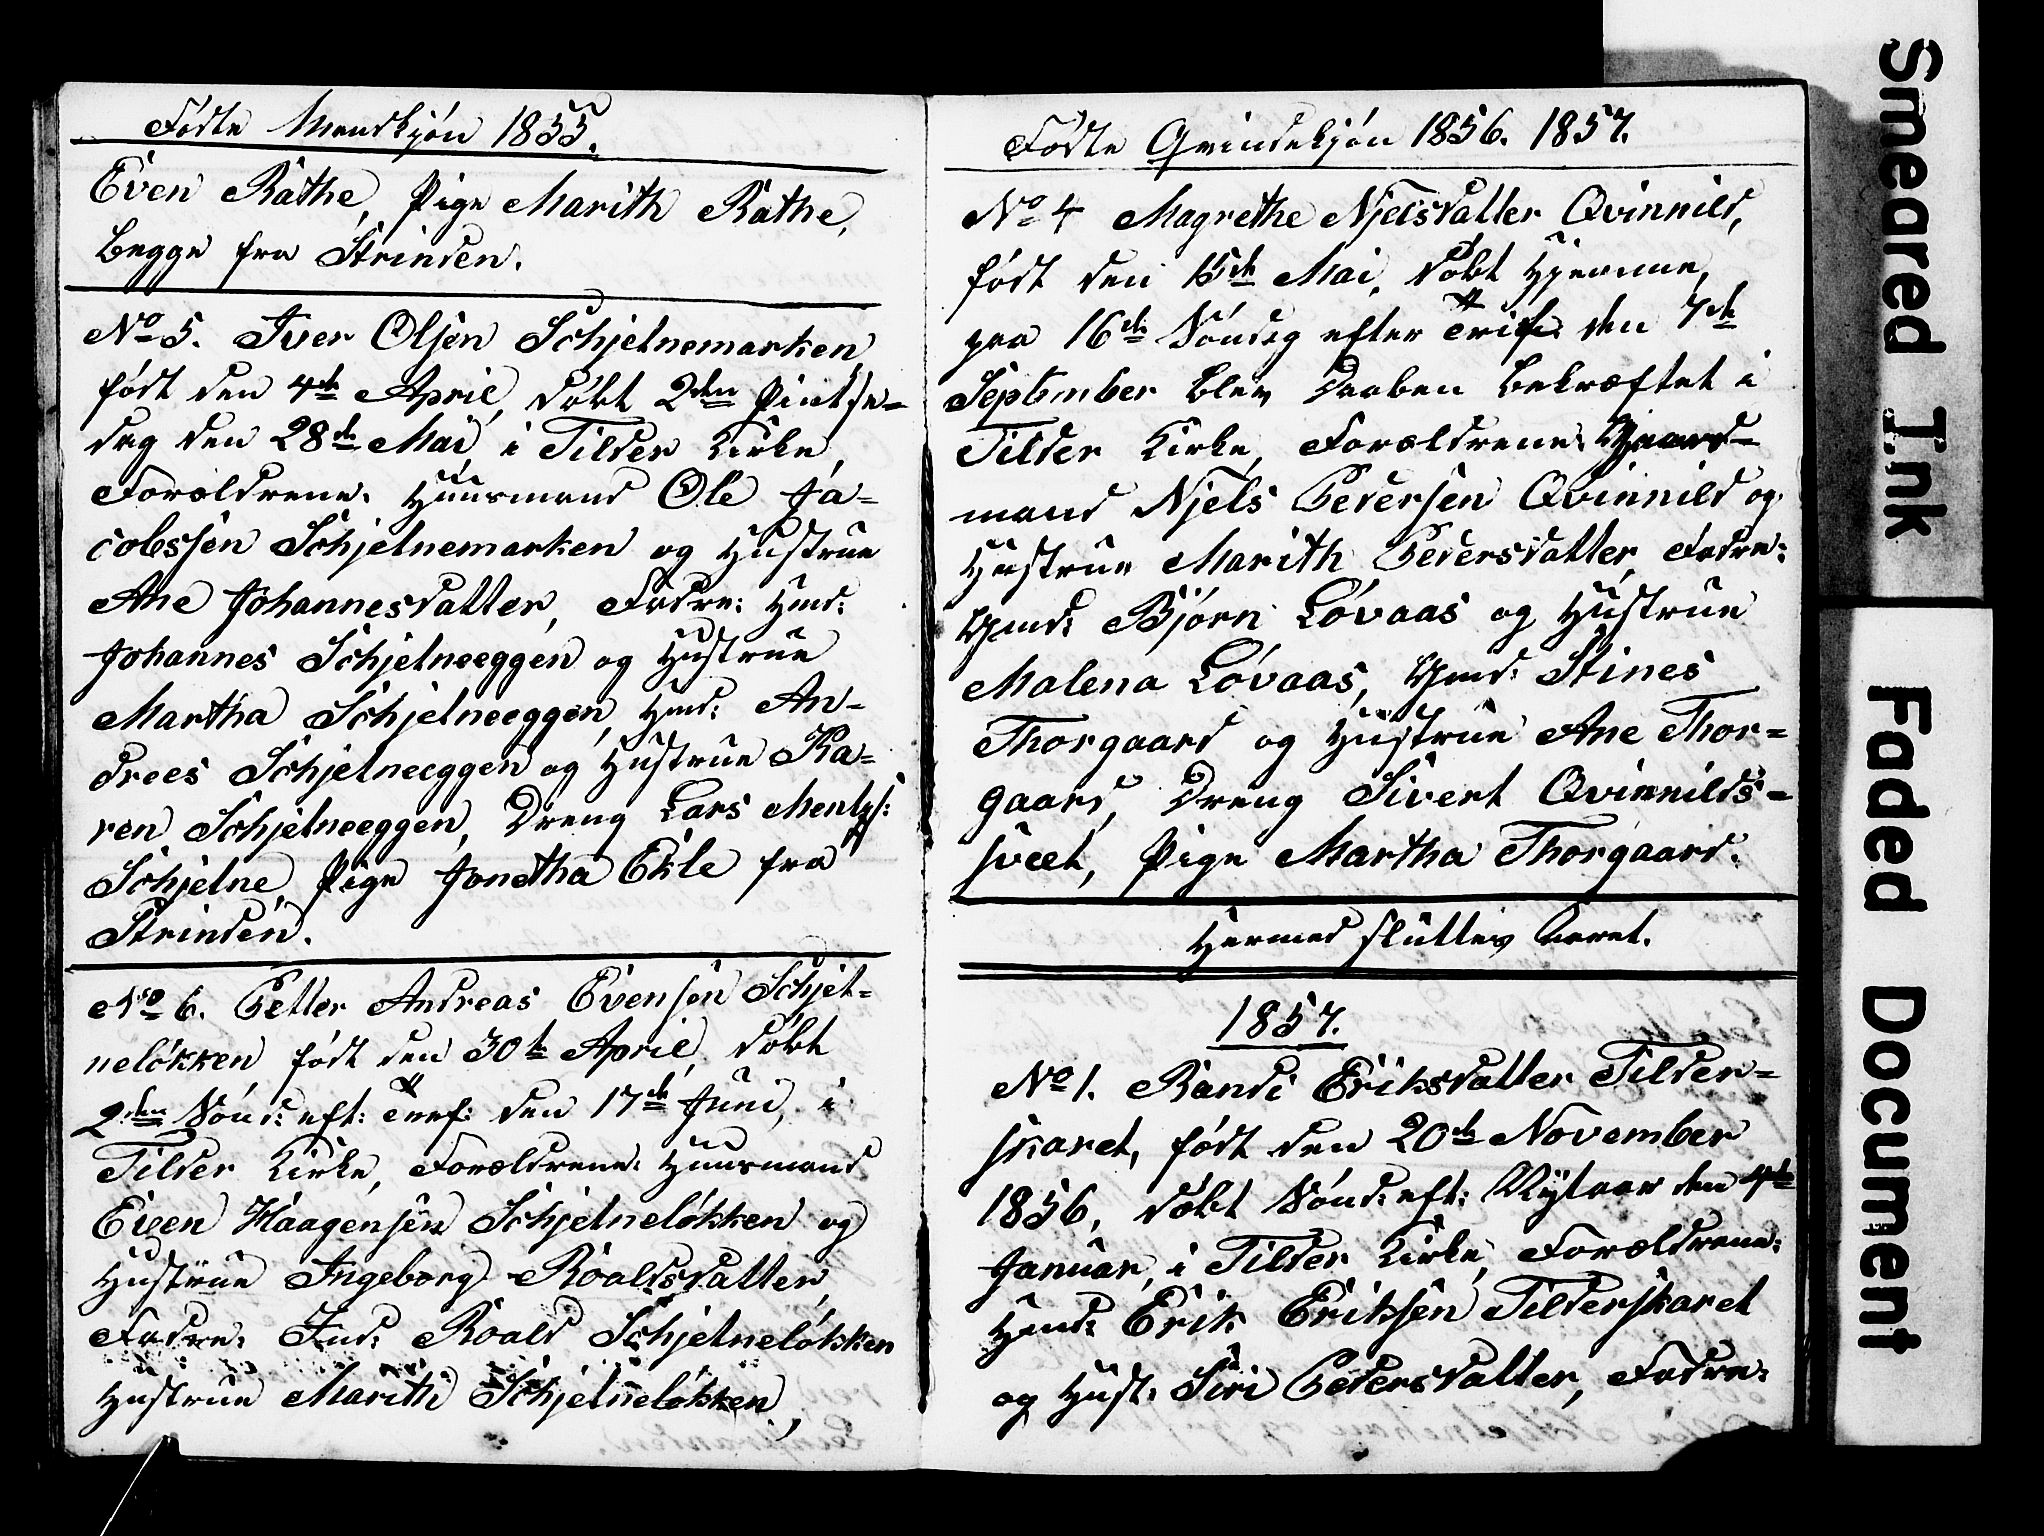 Födte Mandkjön 1855.
Even Räthe, Pige Marith Räthe,
begge fra Strinden.
No 5. Iver Olsen Schjelnemarken
født den 4de April, döbt 2den Pintse-
dag den 28de Mai i Tilder Kirke,
Forældrene: Huusmand Ole Ja-
cobssen Schjelnemarken og Hustrue
Ane Johannesdatter, Fadre: Hmd:
Johannes Schjelneeggen og Hustrue
Martha Schjelneeggen, Hmd: An-
drees Schjelneeggen og Hustrue Ka-
ren Schjelneeggen, Dreng Lars Mentzs:
Schjelne, Pige Jonetha Ekle fra
Strinden.
No 6. Petter Andreas Evensen Schjel-
nelökken født den 30te April, döbt
2den Sönd: eft: Tref: den 17de Juni, i
Tilder Kirke, Forældrene: Huusmand
Even Haagensen Schjelnelökken og
Hustrue Ingeborg Roaldsdatter,
Fadre: Ind: Roald Schjelnelökken
Hustrue Marith Schjelnelökken,
Födte Qvindekjön 1856. 1857.
No 4 Magrethe Njelsdatter Qvinnild,
født den 15de Mai, döbt Hjemme,
paa 16de Söndag efter Trif: den 7de
September blev Daaben bekræftet i
Tilder Kirke, Forældrene: Gaard-
mand Njels Pedersen Qvinnild og
Hustrue Marith Pedersdatter, Fadre:
Gmd: Björn Lövaas og Hustrue
Malena Lövaas, Gmd: Stines
Thorgaard og Hustrue Ane Thor-
gaard, Dreng Sivert Qvinnilds-
sveet, Pige Martha Thorgaard.
Hermed sluttes Aaret.
1857.
No 1. Randi Eriksdatter Tilder-
skaret, født den 20de November
1856, döbt Sönd: eft: Nytaar den 4de
Januar, i Tilder Kirke, Forældrene:
Hmd: Erik Eriksen Tilderskaret
og Hust: Siri Pedersdatter, Fadre:
Smeared Ink
Faded Document